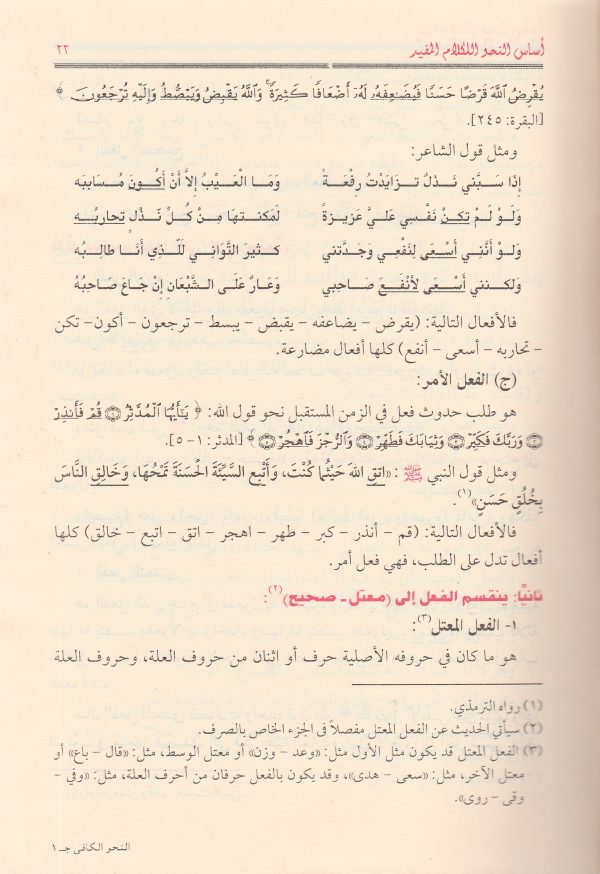 أساس النحو الكلام المفيد ٢٢
يُقْرِضُ ٱللَّهَ قَرْضًا حَسَنًا فَيُضَٰعِفَهُۥ لَهُۥٓ أَضْعَافًا كَثِيرَةً ۚ وَٱللَّهُ يَقْبِضُ وَيَبْصُۜطُ وَإِلَيْهِ تُرْجَعُونَ ﴾
[البقرة: ٢٤٥].
ومثل قول الشاعر:
إِذَا سَبَّني نَذْلٌ تزَايَدْتُ رِفْعَةً وَمَا الْعَيْبُ إلاَّ أَنْ أَكُونَ مُسَابِبَه
وَلَوْ لَمْ تكِنْ نَفْسِي عَلَيَّ عَزِيزَةً لَمكنتهَا مِنْ كُلِّ نَذْلٍ تحاربُه
وَلَوْ أنَّنِي أَسْعَى لِنَفْعِي وَجَدَّتني كثيرَ التَّوَانِي لَلَّذِي أَنَا طالِبُه
ولكنني أَسْعَى لأَنْفَعَ صَاحِبي وَعَارٌ عَلَى الشَّبْعَانِ إنْ جَاعَ صَاحِبُهُ
فالأفعال التالية: (يقرض - يضاعفه - يقبض - يبسط - ترجعون - أكون- تكن
- تحاربه - أسعى - أنفع) كلها أفعال مضارعة.
(ج) الفعل الأمر:
هو طلب حدوث فعل في الزمن المستقبل نحو قول الله: ﴿ يَٰٓأَيُّهَا ٱلْمُدَّثِّرُ ۝١ قُمْ فَأَنذِرْ
۝٢ وَرَبَّكَ فَكَبِّرْ ۝٣ وَثِيَابَكَ فَطَهِّرْ ۝٤ وَٱلرُّجْزَ فَٱهْجُرْ ۝٥ ﴾ [المدثر: ١- ٥].
ومثل قول النبي ﷺ : «اتقِ اللهَ حَيْثُما كُنْتَ، وَأَتْبِعِ السَّيِّئَةَ الْحَسَنَةَ تَمْحُهَا، وَخَالِقِ النَّاسَ
بِخُلُقٍ حَسَنٍ»(١)
فالأفعال التالية: (قم - أنذر - كبر - طهر - اهجر - اتق - اتبع - خالق) كلها
أفعال تدل على الطلب، فهي فعل أمر.
ثانيًا: ينقسم الفعل إلى (معتل - صحيح)(٢):
١- الفعل المعتل(٣):
هو ما كان في حروفه الأصلية حرف أو اثنان من حروف العلة، وحروف العلة
(١) رواه الترمذي.
(٢) سيأتي الحديث عن الفعل المعتل مفصلاً في الجزء الخاص بالصرف.
(٣) الفعل المعتل قد يكون مثل الأول مثل: «وعد - وزن» أو معتل الوسط، مثل: «قال - باع» أو
معتل الآخر، مثل: «سعى - هدى»، وقد يكون بالفعل حرفان من أحرف العلة، مثل: «وفي -
وقى - روى».
النحو الكافى جـ ١